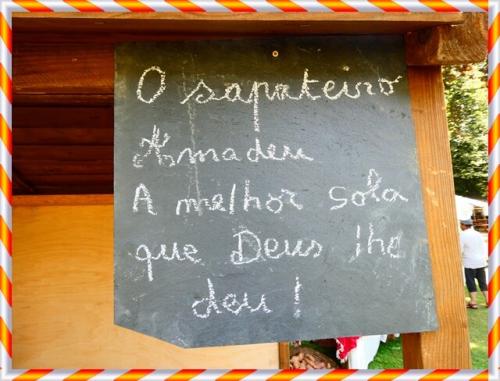 O sapateiro
Amadeu
A melhor sola
que Deus lhe
deu!